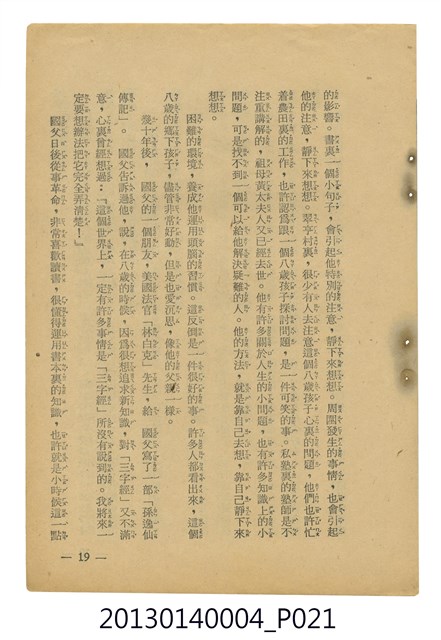 的影響。書裏一個小句子，會引起他特別的注意，靜下來想想。周圍發生的事情，也會引起
他的注意，靜下來想想。翠亨村裏，很少有人去注意這個八歲孩子心裏的問題，他們也許忙
着農田裏的工作，也許認為跟一個八歲孩子探討問題，是一件可笑的事。私塾裏的塾師是不
注重講解的，祖母黃太夫人又已經去世。他有許多關於人生的小問題，也有許多知識上的小
問題，可是找不到一個可以給他解決疑難的人。他的方法，就是靠自己去想，靠自己靜下來
想想。
困難的環境，養成他運用頭腦的習慣。這反倒是一件很好的事。許多人都看出來，這個
八歲的鄉下孩子，儘管非常好動，但是也愛沉思，像他的父親一樣。
幾十年後，　國父的一個朋友，美國法官「林白克」先生，給　國父寫了一部「孫逸仙
傳記」。　國父告訴過他，說，在八歲的時候，因為很想追求新知識，對「三字經」又不滿
意，心裏曾經想過：「這個世界上，一定有許多事情是「三字經」所沒有說到的。我將來一
定要想辦法把它完全弄清楚！」
國父日後從事革命，非常喜歡讀書，很懂得運用書本裏的知識，也許就是小時候這一點
— 19 —
20130140004_P021